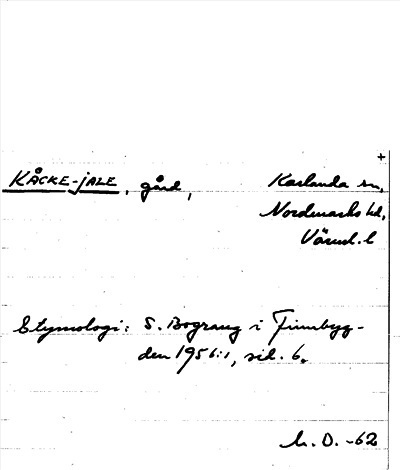 +
KÅCKE-JALE, gård, Karlanda sn,
Nordmarks hd,
Värml. l
Etymologi: S. Bograng i Finnbyg-
den 1956:1, sid. 6.
h. D. -62